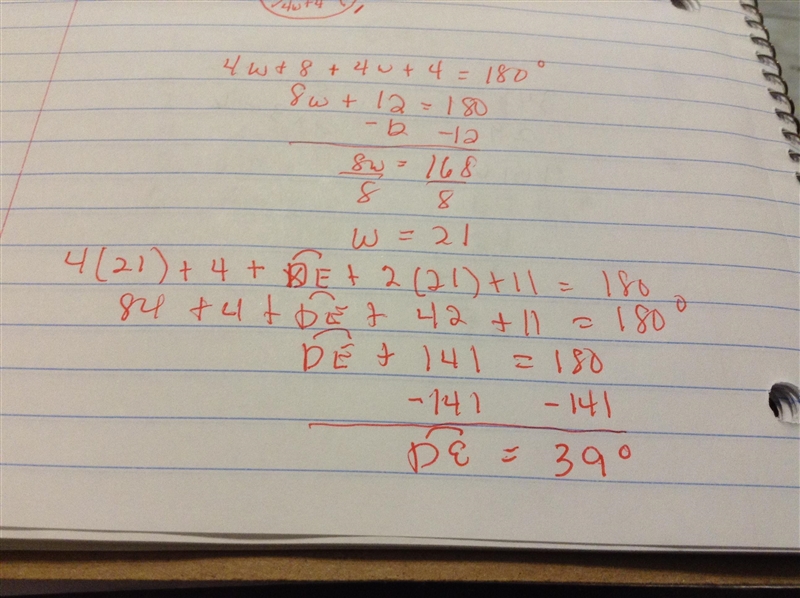 4w+4
4w + 8 + 4w + 4 = 180°
8w + 12 = 180
-12 -12
8w = 168
8 8
w = 21
4(21) + 4 + DE + 2(21) + 11 = 180
84 + 4 + DE + 42 + 11 = 180°
DE + 141 = 180
-141 -141
DE = 39°